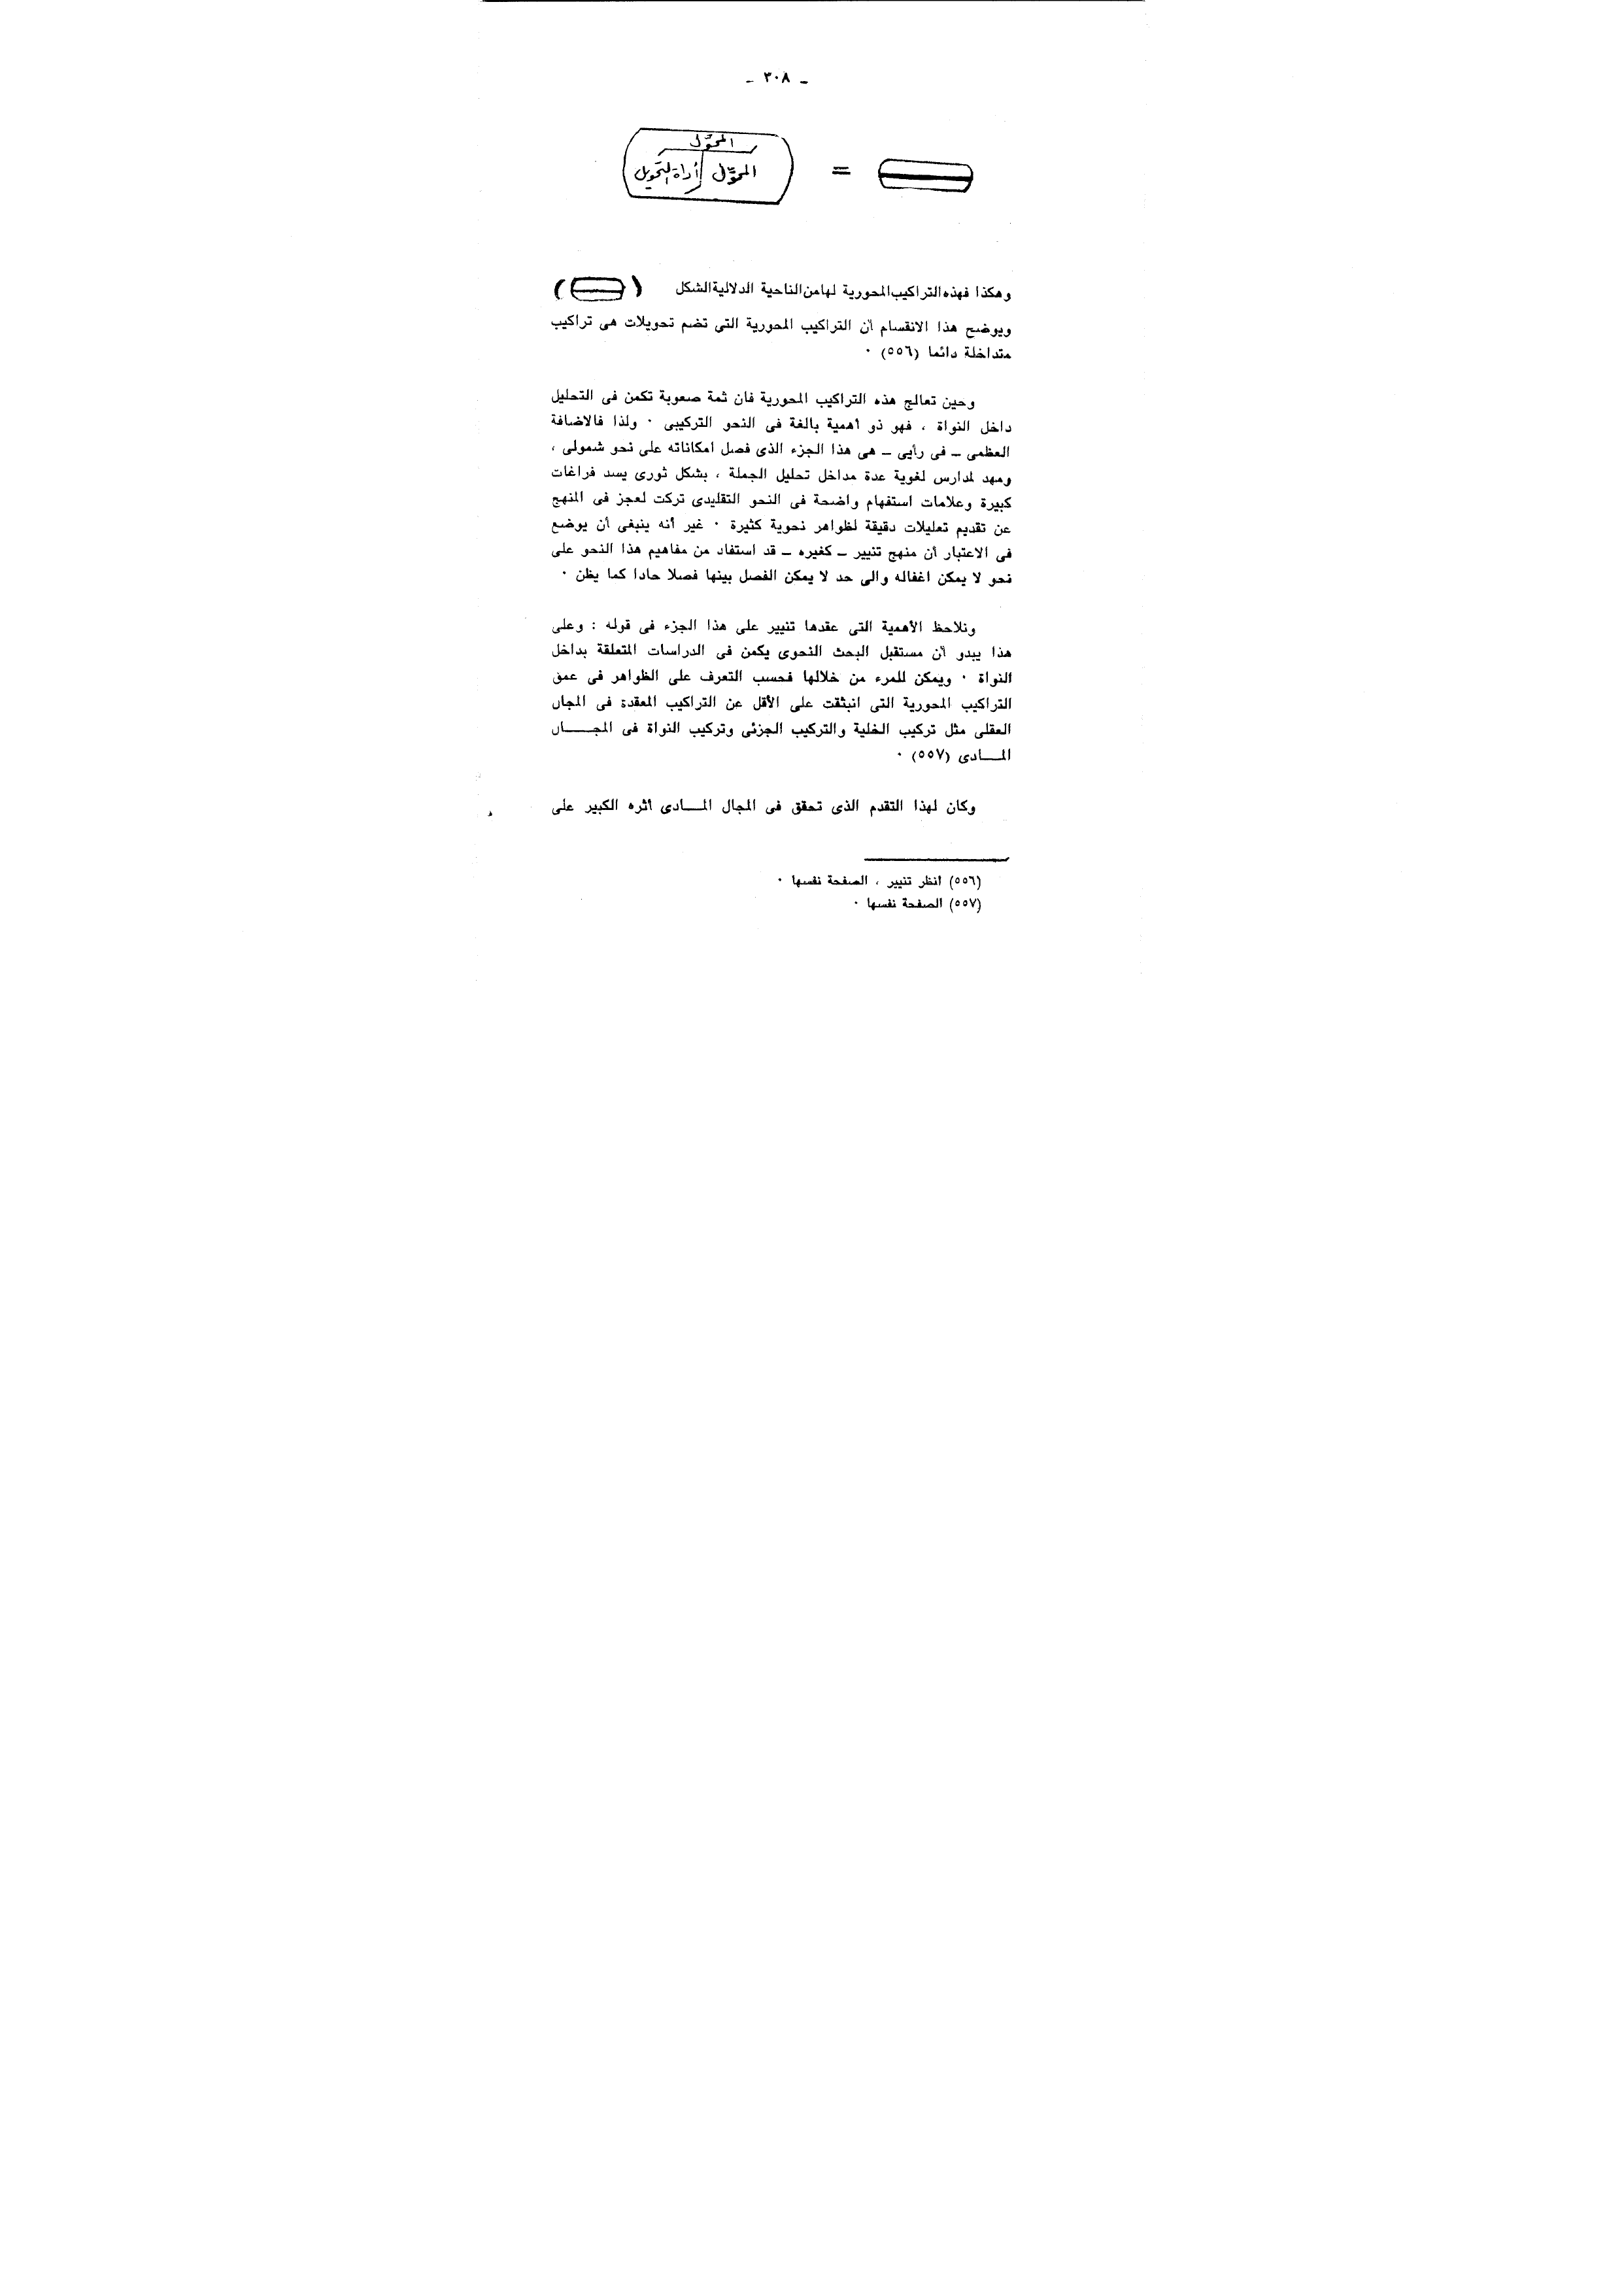 ـ ٣٠٨ ـ
المحوّل
= المحوّل أداة التحويل
وهكذا فهذه التراكيب المحورية لها من الناحية الدلالية الشكل ( )
ويوضح هذا الانقسام أن التراكيب المحورية التى تضم تحويلات هى تراكيب
متداخلة دائما (٥٥٦) ٠
وحين تعالج هذه التراكيب المحورية فان ثمة صعوبة تكمن فى التحليل
داخل النواة ، فهو ذو أهمية بالغة فى النحو التركيبى ٠ ولذا فالاضافة
العظمى ـ فى رأيى ـ هى هذا الجزء الذى فصل امكاناته على نحو شمولى ،
ومهد لمدارس لغوية عدة مداخل تحليل الجملة ، بشكل ثورى يسد فراغات
كبيرة وعلامات استفهام واضحة فى النحو التقليدى تركت لعجز فى المنهج
عن تقديم تعليلات دقيقة لظواهر نحوية كثيرة ٠ غير أنه ينبغى أن يوضع
فى الاعتبار أن منهج تنيير ـ كغيره ـ قد استفاد من مفاهيم هذا النحو على
نحو لا يمكن اغفاله والى حد لا يمكن الفصل بينها فصلا حادا كما يظن ٠
ونلاحظ الأهمية التى عقدها تنيير على هذا الجزء فى قوله : وعلى
هذا يبدو أن مستقبل البحث النحوى يكمن فى الدراسات المتعلقة بداخل
النواة ٠ ويمكن للمرء من خلالها فحسب التعرف على الظواهر فى عمق
التراكيب المحورية التى انبثقت على الأقل عن التراكيب المعقدة فى المجال
العقلى مثل تركيب الخلية والتركيب الجزئى وتركيب النواة فى المجـــال
المـــادى (٥٥٧) ٠
وكان لهذا التقدم الذى تحقق فى المجال المـــادى أثره الكبير على
(٥٥٦) انظر تنيير ، الصفحة نفسها ٠
(٥٥٧) الصفحة نفسها ٠